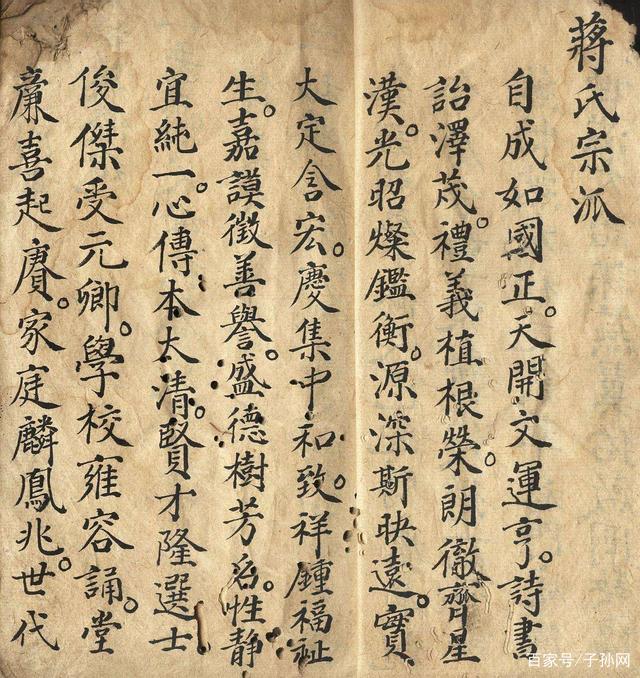 蔣氏宗派
自成如國正。天開文運亨。詩書
詒澤茂。禮義植根榮。朗徹齊星
漢。光昭燦鑑衡。源深斯映遠。實
大定含宏。慶集中和致。祥鍾福祉
生。嘉謨徵善譽。盛德樹芳名。性静
宜純一。心傳本太清。賢才隆選士。
俊傑受元卿。學校雍容誦。堂
廉喜起賡。家庭麟鳳兆。世代
百家号/子孙网